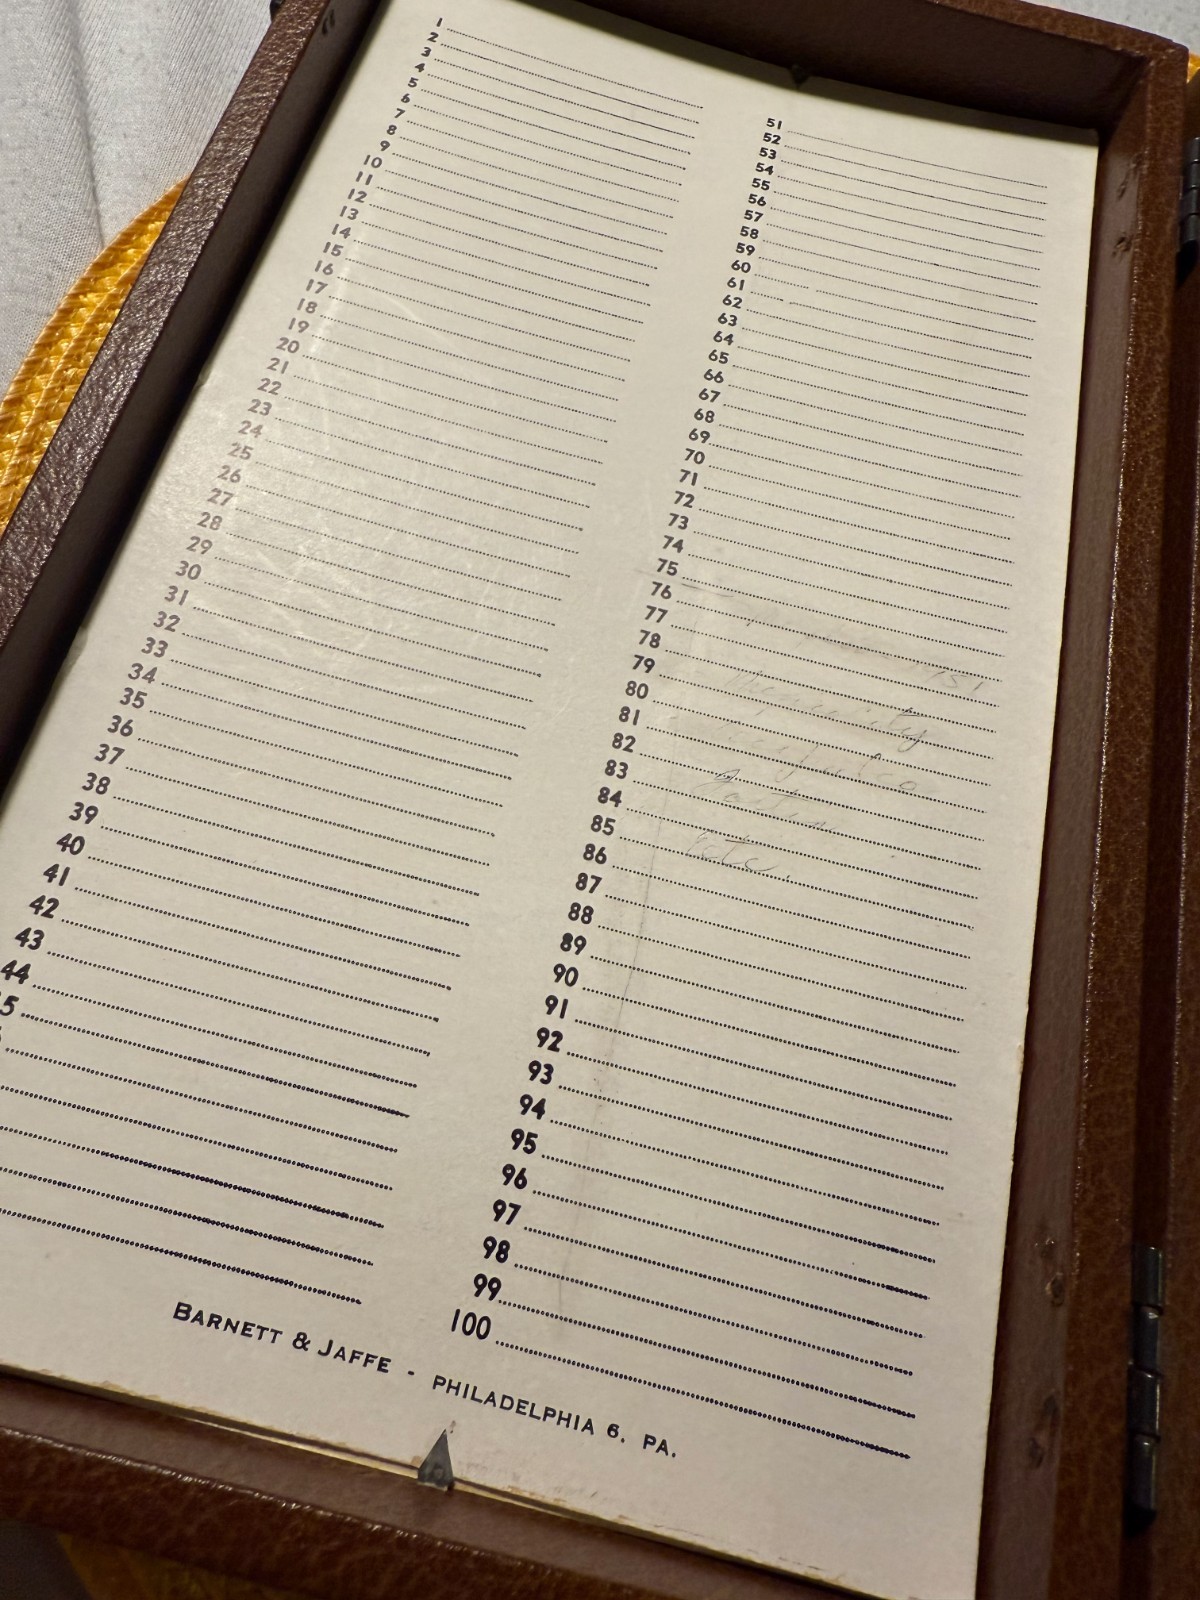 1
2
3
4
5
6
7
8
9
10
11
12
13
14
15
16
17
18
19
20
21
22
23
24
25
26
27
28
29
30
31
32
33
34
35
36
37
38
39
40
41
42
43
44
5
51
52
53
54
55
56
57
58
59
60
61
62
63
64
65
66
67
68
69
70
71
72
73
74
75
76
77
78
79
80
81
82
83
84
85
86
87
88
89
90
91
92
93
94
95
96
97
98
99
100
etc.
BARNETT & JAFFE - PHILADELPHIA 6, PA.